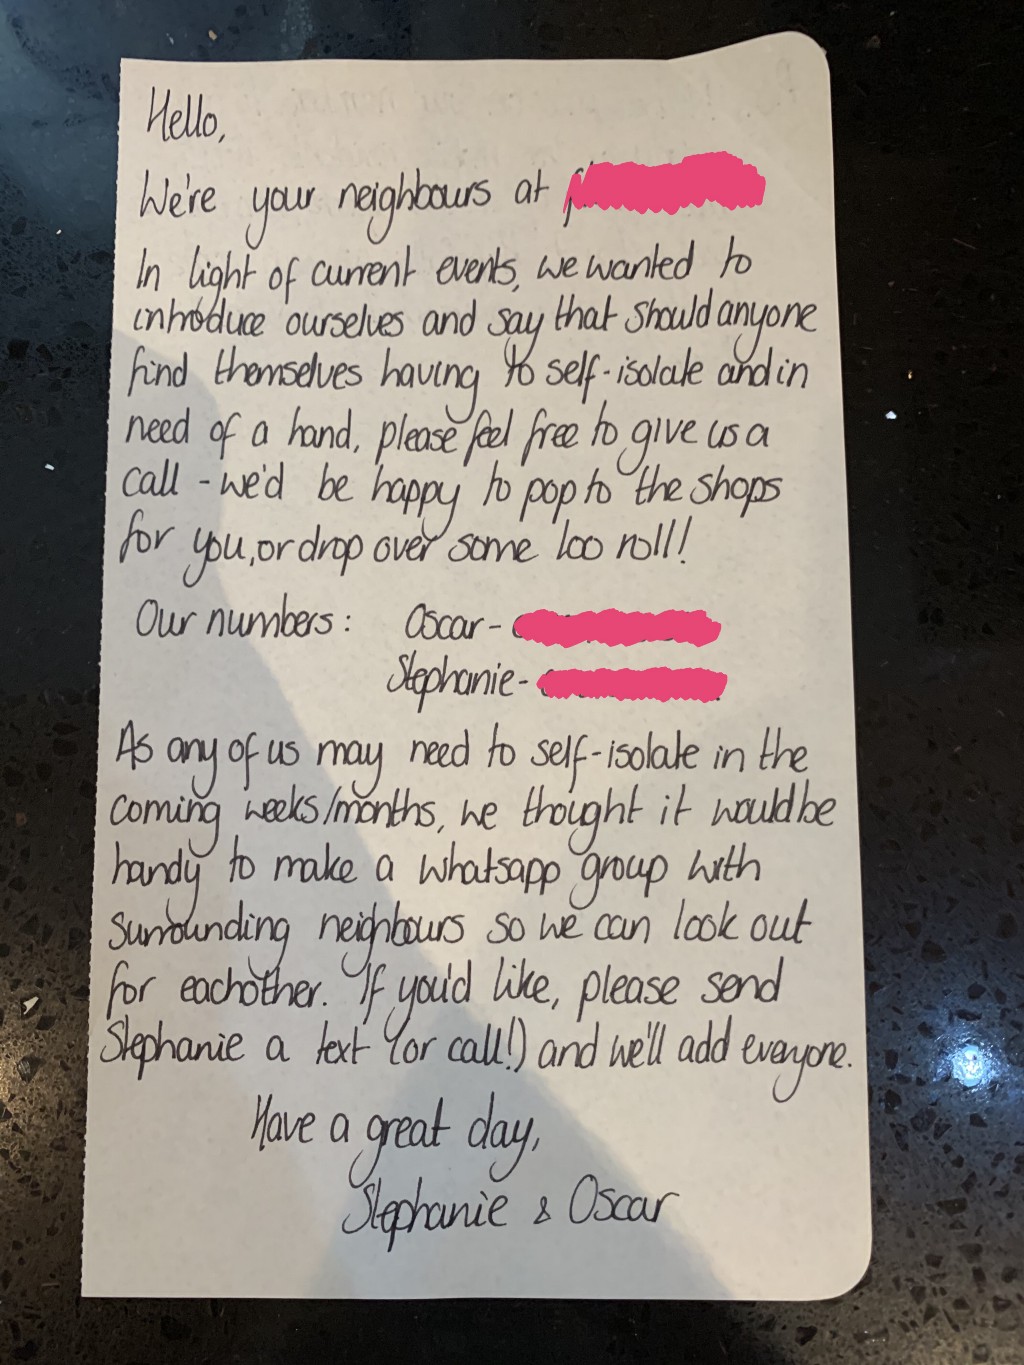 Hello,
We're your neighbours at
In light of current events, we wanted to
introduce ourselves and say that should anyone
find themselves having to self-isolate and in
need of a hand, please feel free to give us a
call - we'd be happy to pop to the shops
for you, or drop over some loo roll!
Our numbers: Oscar-
Stephanie-
As any of us may need to self-isolate in the
coming weeks/months, we thought it would be
handy to make a whatsapp group with
surrounding neighbours so we can look out
for eachother. If you'd like, please send
Stephanie a text (or call!) and we'll add everyone.
Have a great day,
Stephanie & Oscar